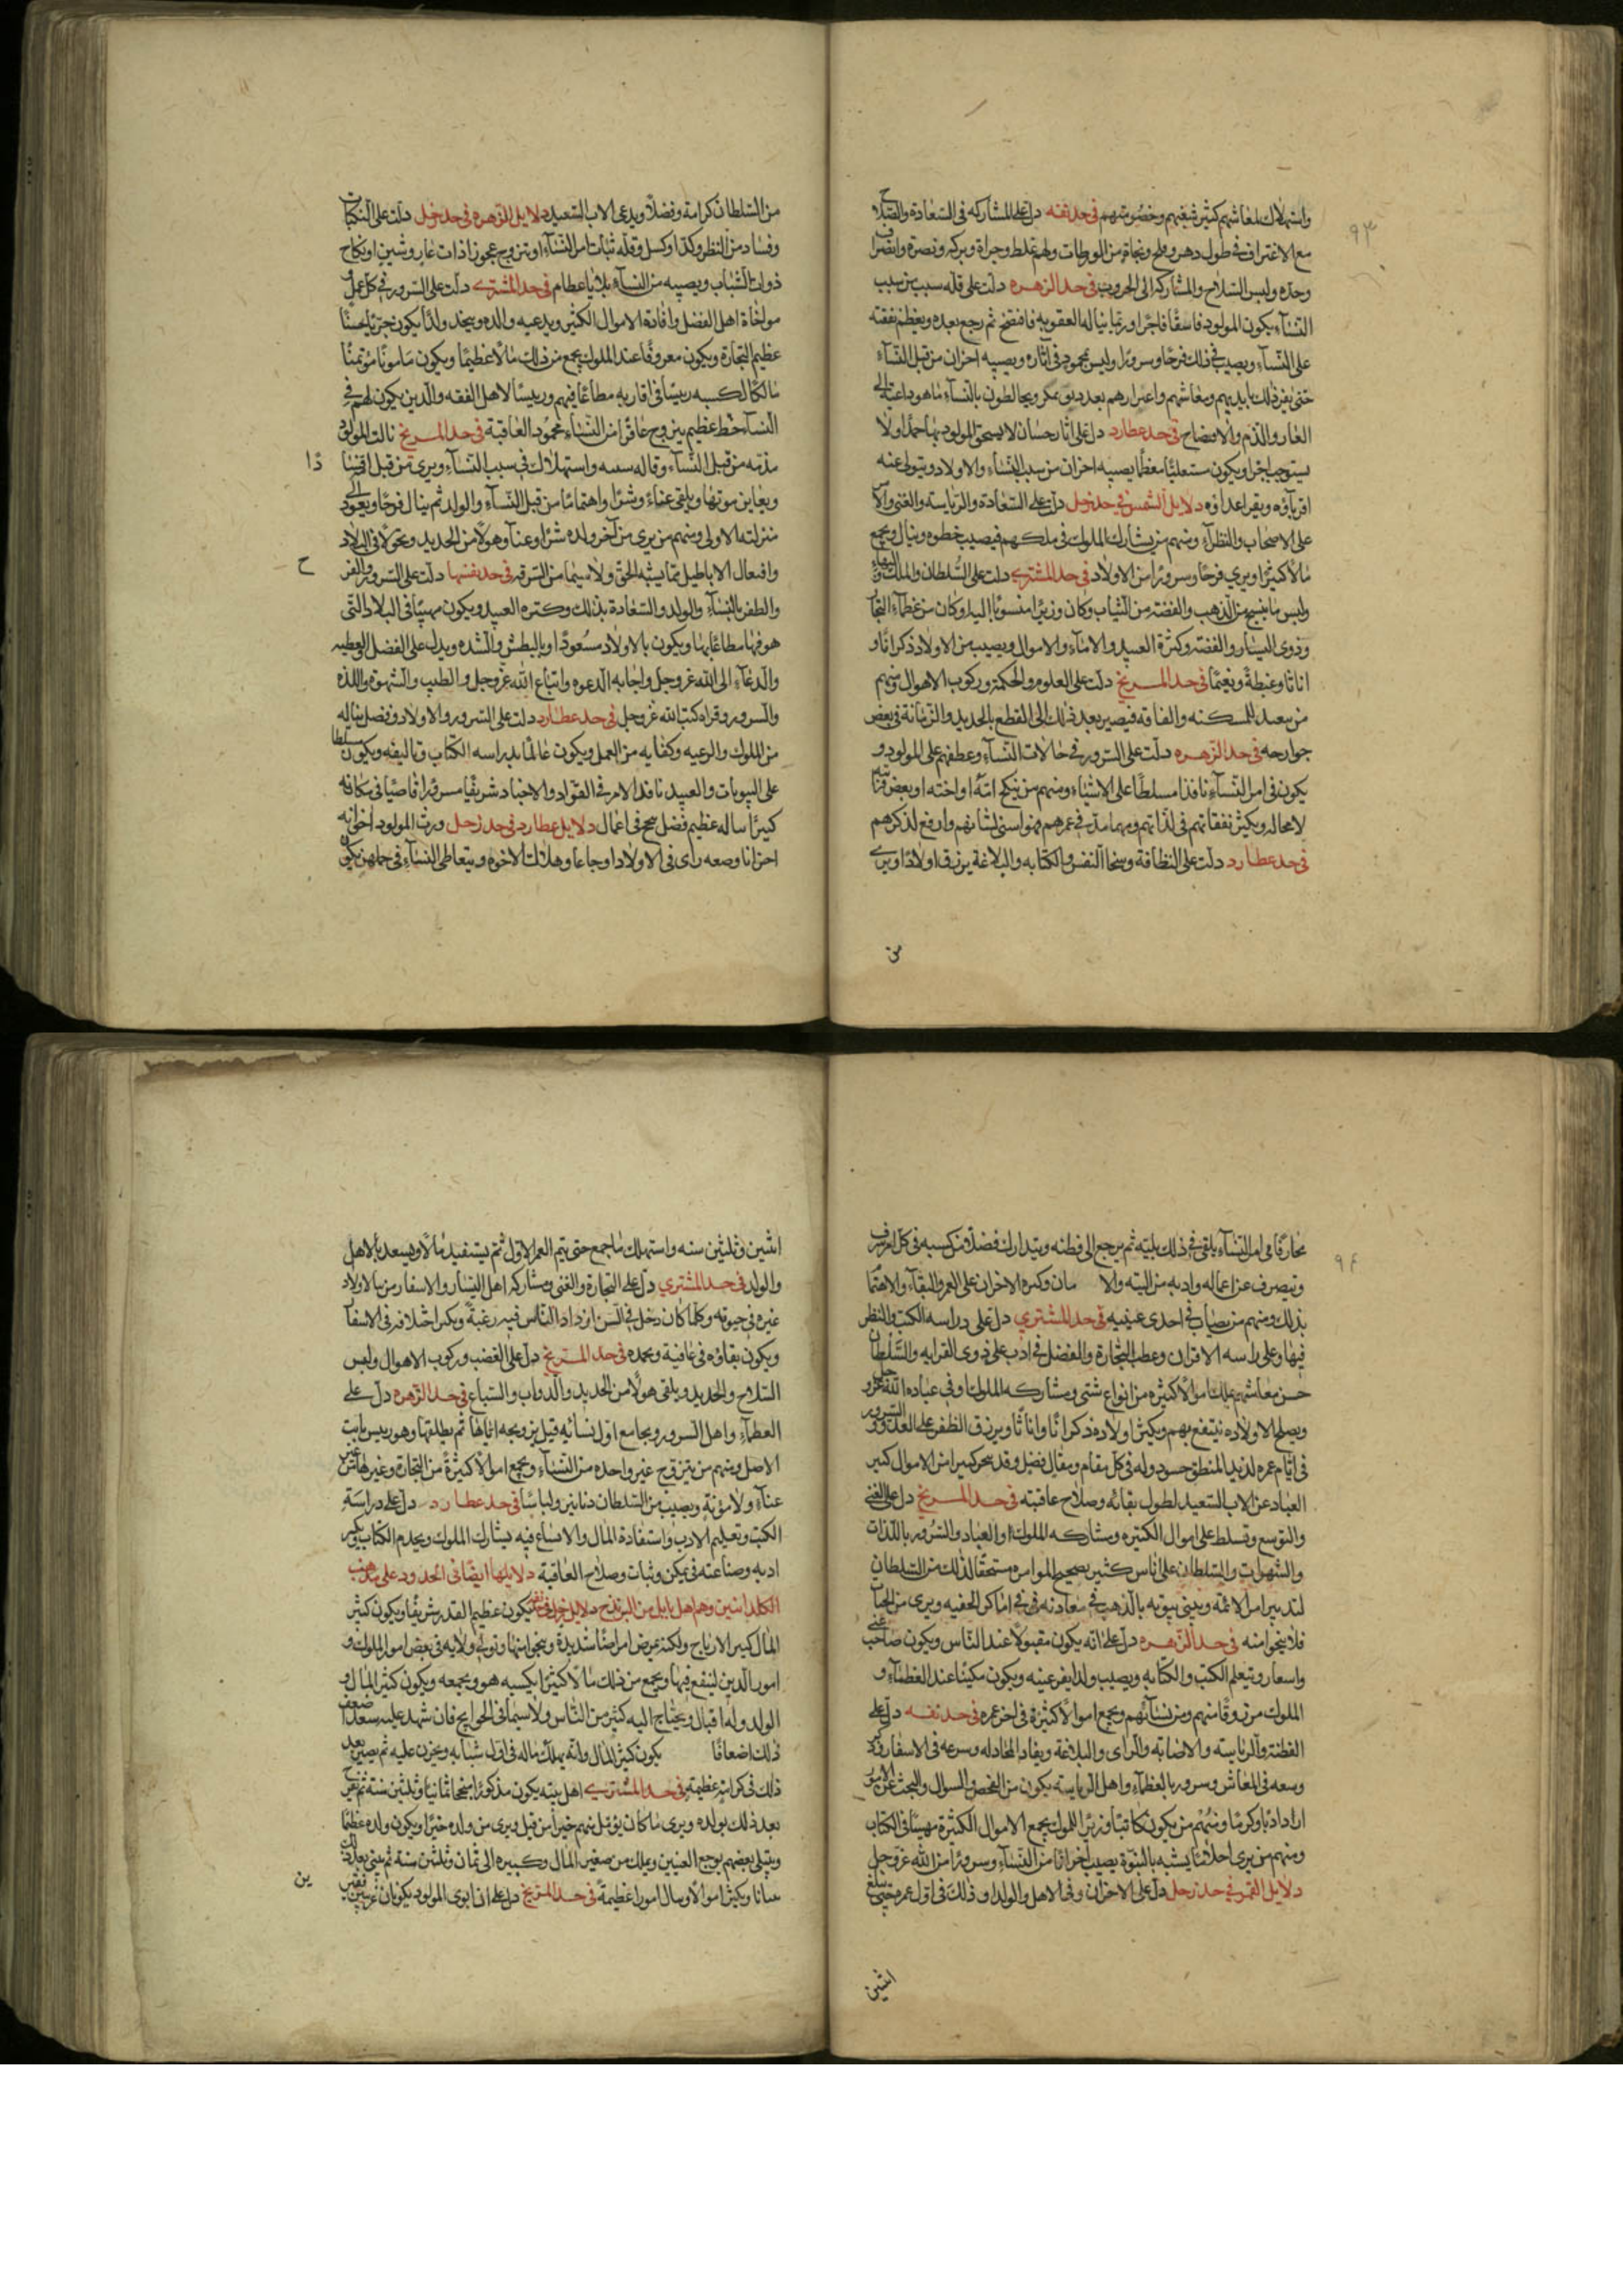 ٩٣
واستهلاك لمعاشهم كثير شغبهم وخصومتهم في حد نفسه دل على المشاركه في السعادة والصلاح
مع الاغتراف في طول دهر وفلح ونجاة من الورطات ولهم غلط وجراة وبركه ونصرة وانصراف
وحده ولبس السلاح والمشاركه الى الحروب في حد الزهره دلت على قله سبب من سبب
النساء يكون المولود فاسقا فاجرا وربما يناله العقوبه فافتضح ثم رجع بعده ويعظم نفقته
على النساء ويصيب في ذلك فرحا وسرورا وليس بمحمود في اثاره ويصيبه احزان من قبل النساء
حتى يفر ذلك بايديهم ومعاشهم بعد ويخالطون بالنساء ما هو داعية الى
العار والذم والافتضاح في حد عطارد دل على اثار حسان لا يستحق المولود بها حمدا ولا
يستوجب اجرا ويكون مستعليا معظما يصيبه احزان من سبب النساء والاولاد ويتولى عنه
اقرباؤه ويقر اعداؤه دلايل الشمس في حد زحل دلت على السعادة والرياسة والغنى والامر
على الاصحاب والنظراء ومنهم من يشارك الملوك في ملكهم فيصيب خطوه وينال ويجمع
مالا كثيرا ويرى فرحا وسرورا من الاولاد في حد المشتري دلت على السلطان والملك والبهاء
ولبس ما ينسج من الذهب والفضه من الثياب وكان وزيرا منسوبا اليه وكان من عظماء التجار
وذوى اليسار والفضه وكثرة العبيد والاماء والاموال ويصيب من الاولاد ذكرانا و
اناثا وغبطة ونعيما في حد المريخ دلت على العلوم والحكمة وركوب الاهوال ومنهم
من يصيبه المسكنه والفاقه فيصير بعد ذلك الى القطع بالحديد والزمانة في بعض
جوارحه في حد الزهره دلت على السرور في حالات النساء وعطفهم على المولود و
يكون في امر النساء نافذا مسلطا على الاشياء ومنهم من ينكح امه او اخته او بعض قراباته
لا محاله ويكثر نفقاتهم في لذاتهم ومهما مدت في عمرهم فهو اسنى لشانهم وارفع لذكرهم
في حد عطارد دلت على النظافة وسخاء النفس والكتابه والبلاغة يرزق اولادا ويرى
من
من السلطان كرامة وفضلا ويدعى الاب السعيد دلايل الزهره في حد زحل دلت على النكبات
وفساد من النظر وكدا وكسل وقله ثبات امر النساء او تزوج عجوزا ذات عار وشين او نكاح
ذوات الشباب ويصيبه من النساء بلايا عظام في حد المشتري دلت على السرور في كل عمل و
مواخاة اهل الفضل وافادة الاموال الكثير ويدعيه والده ويجد ولدا يكون خيرا حسنا
عظيم التجارة ويكون معروفا عند الملوك يجمع من ذلك مالا عظيما ويكون مامونا موتمنا
مالكا لكسبه رييسا في اقاربه مطاعا فيهم ورييسا لاهل الفقه والدين يكون لهم في
النساء حظ عظيم يتزوج عاقرا من النساء محمود العاقبة في حد المريخ نالت المولود
مذمه من قبل النساء وقاله واستهلاك في سبب النساء ويرى من قبل
ذا
ويعاين موتها ويلقى عناء وشرا واهتماما من قبل النساء والولد ثم ينال فرحا ويعود الى
منزلته الاولى ومنهم من يرى من اخر ولده شرا وعنا وهولا من الحديد وتحولا في البلاد
وافتعال الاباطيل مما يشبه الحق ولا سيما من السرقه في حد نفسها دلت على السرور والفرح
ح
والظفر بالنساء والولد والسعادة بذلك وكثره العبيد ويكون مهيبا في البلاد التى
هو فيها مطاعا بها ويكون بالاولاد مسعودا وبالبطش والشده ويدل على الفضل والعطيه
والدعاء الى الله عز وجل واجابه الدعوه واتباع الله عز وجل والطيب والشهوة واللذه
والسرور وقراه كتب الله عز وجل في حد عطارد دلت على السرور والاولاد وفضل يناله
من الملوك والرعيه وكفايه من العمل ويكون عالما بدراسه الكتاب وتاليفه ويكون سلطا
على البيوتات والعبيد نافذ الامر في القواد والاجناد شريفا مسرورا قاصيا في مكانه
كبيرا ساله عظيم فضل في اعمال دلايل عطارد في حد زحل ورث المولود اخوانه
احزانا وصعه راى في الاولاد اوجاعا وهلاك الاخوه ويتعاطى النساء في يكون
٩٤
محارفا فى امر النساء يلقى في ذلك بليه ثم يرجع الى فطنه ويتدارك فضلا من كسبه في كل امر يشرف
وتصرف عن اعماله وادبه من اليه والا مان وكثره الاحزان على العمر والبقاء والاهتما
بذلك ومنهم من يصاب في احدى عينيه في حد المشتري دل على دراسه الكتب والنظر
فيها وعلى راسه الاقران وعطب التجارة والفضل في ادب على ذوى القرابه والسلطان
حسن معاشهم يملك اموالا كثيره من انواع شتى ومشاركه الملوك وفي عباده الله عز و جل
ويصلح الاولاده ينتفع بهم ويكثر اولاده ذكرانا واناثا ويرزق الظفر على العدو والسرور
في ايام عمره لذيذ المنطق حسود وله في كل مقام ومقال فضل وقد من الاموال كبير
العباد عن الاب السعيد لطول بقائه وصلاح عاقبته في حد المريخ دل على الغنى
والتوسع وتسلط على اموال الكثيره ومشاركه الملوك او العباد والسرور باللذات
والشهوات والسلطان على اناس كثير صحيح المواسره مستحقا لذلك من السلطان
لتدبير امر الائمه ويبنى بيوته بالذهب في معادنه في اماكن الخفيه ويرى من الجنان
فلا ينجوا منه في حد الزهره دل على انه يكون مقبولا عند الناس ويكون صاحب غنى
واسعار ويتعلم الكتب والكتابه ويصيب ولدا يقر عينه ويكون مكينا عند العظماء و
الملوك مرزوقا منهم ومن نسائهم ويجمع اموالا كثيرة في اخر عمره في حد نفسه دل على
الفطنة والرياسه والاصابه والراى والبلاغة ويفاد المجادله وسرعه في الاسفار
وسعه في المعاش وسرور بالعظماء واهل الرياسه يكون من الفحص والسوال والبحث عن الامور
ارادا دبا وكرما ومنهم من يكون كاتبا وزيرا للملوك يجمع الاموال الكثيرة مهيبا في الكتاب
ومنهم من يرى احلاما يشبه بالنبوة يصيب احزانا من النساء وسرورا من الله عز وجل
دلايل القمر في حد زحل دل على الاحزان وفي الاهل والولد او ذلك في اول عمره حتى يبلغ
اثنين
اثنين وثلثين سنه واستهلك ما جمع حتى يتم العمر الاول ثم يستفيد مالا ويسعد بالاهل
والولد في حد المشتري دل على التجارة والغنى ومشاركه اهل اليسار والاسفار من بلا ولاد
غيره في حيوته وكلما كان دخل في السن ازداد الناس فيه رغبة ويكثر اختلافه في الاسفا
ويكون بقاؤه في عافية ويحمده في حد المريخ دل على الغضب وركوب الاهوال ولبس
السلاح والحديد ويلقى هولا من الحديد والدواب والسباع في حد الزهره دل على
العطاء واهل السرور ويجامع اول نسائه قبل تزويجه اياها ثم يطلقها وهو رييس ثابت
الاصل ومنهم من يتزوج غير واحده من النساء ويجمع اموالا كثيرة من التجارة وغيرها من غير
عناء ولا مؤنة ويصيب من السلطان دنانير ولباسا في حد عطارد دل على دراسة
الكتب وتعليم الادب واستفادة المال والاتساع فيه يشارك الملوك ويخدم الكتاب يكبر
ادبه وصناعته في يمكن وثبات وصلاح العاقبة دلايلها ايضا في الحدود على مذهب
الكلدانيين وهم اهل بابل من البرتدج دلايل زحل في نفسه يكون عظيم القدر شريفا ويكون كثير
المال كبير الارباح ولكنه يمرض امراضا شديدة وينجى منها وتولى ولايه في بعض امور الملوك و
امور الدين لينفع فيها ويجمع من ذلك مالا كثيرا يكسبه هو ويجمعه ويكون كثير المال و
الولد وله اقبال ويحتاج اليه كثير من الناس ولا سيما في الحوايج فان شهد عليه سعد ا ضعف
ذلك اضعافا يكون كثير المال وانه يملك ماله في اول شبابه ويحزن عليه ثم يصير بعد
ذلك في كرامة عظيمة في حد المشتري اهل بيته يكون مذكورا ثمانيا وثلثين سنة ثم يفرح
بعد ذلك بولده ويرى ما كان يؤمل منهم خيرا من قبل ويرى من ولده خيرا ويكون ولده عظيما
ويبتلى بعضهم بوجع العينين ويملك من صغير المال وكبيره الى ثمان وثلثين سنة ثم يبنى بعد ذلك
بنيانا ويكثر اموالا وينال امورا عظيمة في حد المريخ دل على ان ابوى المولود يكونان غريبين فقيرين
ين